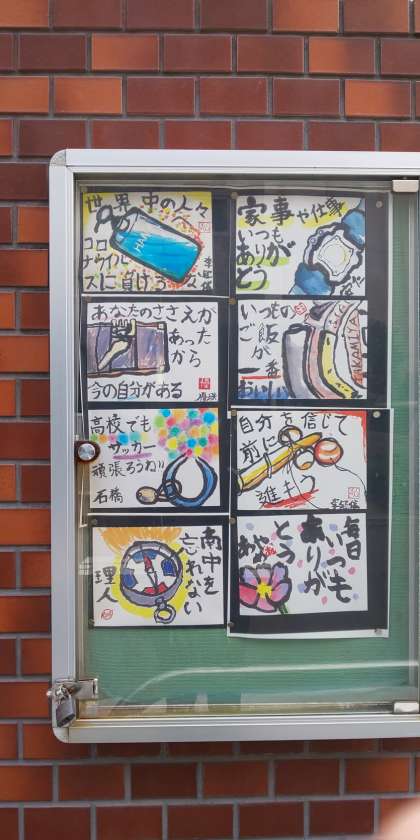 世界中の人々
コロ
ナウイル
スに負けるな
家事や仕事
いつも
ありが
とう
あなたのささえが
あった
から
今の自分がある
いつもの
ご飯
が
一番
おいしい
高校でも
サッカー
頑張ろうね!!
石橋
自分を信じて
前に
進もう
南中を
忘れない
理人
毎日
いつも
ありが
とう